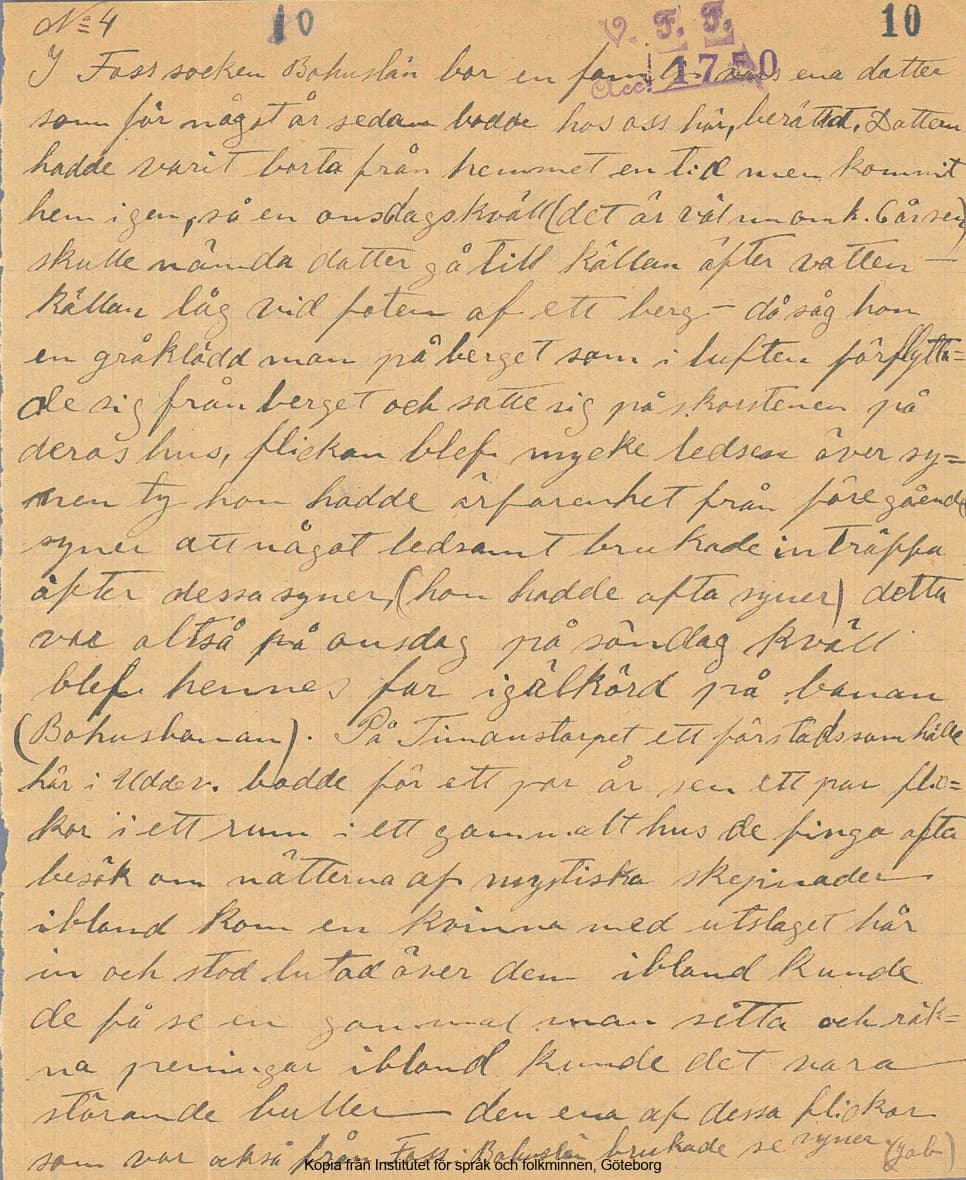 No 4 10 V. F. F. 10
I Foss socken Bohuslän bor en familj vars ena dotter
Acc. 1750
som för något år sedan bodde hos oss här, berättat. Dottern
hadde varit borta från hemmet en tid men kommit
hem igen, så en onsdagskväll (det är väl nu omk. 6 år sen)
skulle nämda dotter gå till källan äfter vatten —
källan låg vid foten af ett berg — då såg hon
en gråklädd man på berget som i luften förflytta=
de sig från berget och satte sig på skorstenen på
deras hus, flickan blef mycke ledsen över sy=
nen ty hon hadde ärfarenhet från föregående
syner att något ledsamt brukade inträppa
äfter dessa syner, (hon hadde ofta syner) detta
var altså på onsdag på söndag kväll
blef hennes far igälkörd på banan
(Bohusbanan). På Timanstorpet ett förstadssamhälle
här i Uddev. bodde för ett par år sen ett par flic=
kor i ett rum i ett gammalt hus de fingo ofta
besök om nätterna af mystiska skepnader
ibland kom en kvinna med utslaget hår
in och stod lutad över dem ibland kunde
de få se en gammal man sitta och räk=
na peningar ibland kunde det vara
störande buller — den ena af dessa flickor
som var också från Foss Bohuslän brukade se syner (jab)
Kopia från Institutet för språk och folkminnen, Göteborg